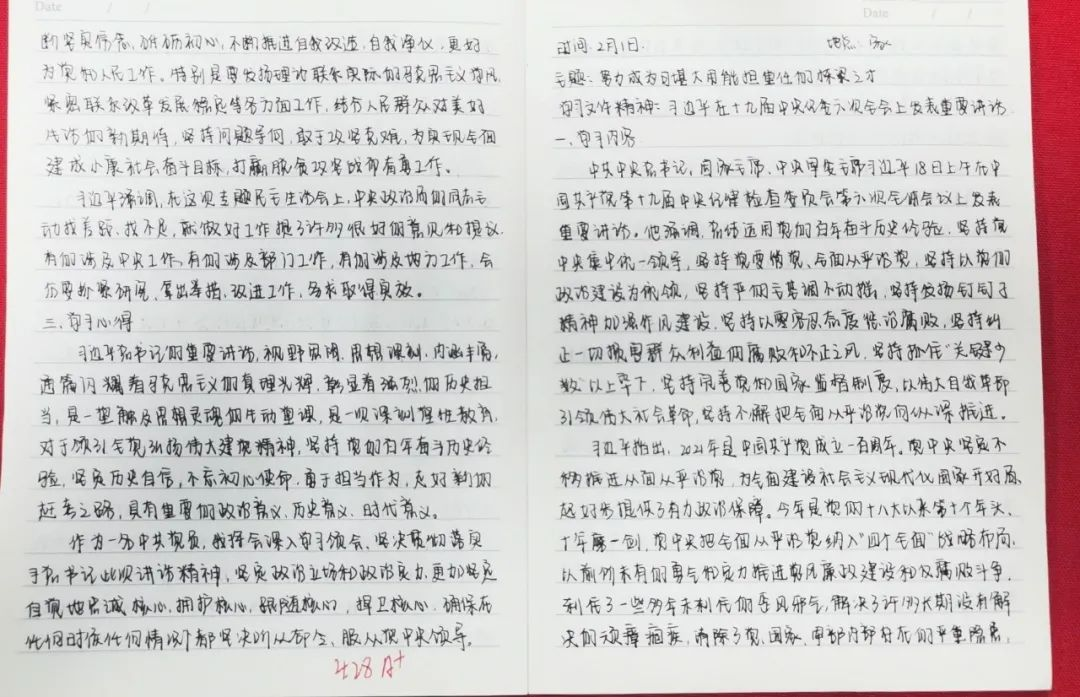 Date / /
断坚定信念、砥砺初心,不断推进自我改造,自我净化,更好
为党和人民工作。特别是要发扬理论联系实际的马克思主义学风,
紧密联系改革发展稳定等各方面工作,结合人民群众对美好
生活的新期待,坚持问题导向,敢于攻坚克难,为实现全面
建成小康社会奋斗目标,打赢脱贫攻坚战部有责工作。
习近平强调,在这次专题民主生活会上,中央政治局的同志主
动找差距、找不足,就做好工作提了许多很好的意见和建议,
有的涉及中央工作、有的涉及部门工作,有的涉及地方工作,会
后要抓紧研究、拿出举措、改进工作,务求取得实效。
三、学习心得
习近平总书记的重要讲话,视野宏阔、思想深刻、内涵丰富,
通篇闪耀着马克思主义的真理光辉,彰显着强烈的历史担
当,是一堂触及思想灵魂的生动党课,是一次深刻党性教育,
对于领引全党弘扬伟大建党精神,坚持党的百年奋斗历史经
验,坚定历史自信,不忘初心使命,勇于担当作为,走好新的
赶考之路,具有重要的政治意义、历史意义、时代意义。
作为一名中共党员,我将会深入学习领会、坚决贯彻落实
习总书记此次讲话精神,坚定政治立场和政治定力,更加坚定
自觉地忠诚核心、拥护核心、跟随核心,捍卫核心,确保在
任何时候任何情况下都坚决听从命令、服从党中央领导。
428 A+
Date / /
时间:2月1日. 地点:家
主题:努力成为可堪大用能担重任的栋梁之才
学习文件精神:习近平在十九届中央纪委六次全会上发表重要讲话
一、学习内容
中共中央总书记、国家主席、中央军委主席习近平18日上午在中
国共产党第十九届中央纪律检查委员会第六次全体会议上发表
重要讲话。他强调,总结运用党的百年奋斗历史经验,坚持党
中央集中统一领导,坚持党要管党、全面从严治党,坚持以党的
政治建设为统领,坚持严的主基调不动摇,坚持发扬钉钉子
精神加强作风建设,坚持以零容忍态度惩治腐败,坚持纠
正一切损害群众利益的腐败和不正之风,坚持抓住“关键少
数”以上率下,坚持完善党和国家监督制度,以伟大自我革命
引领伟大社会革命,坚持不懈把全面从严治党向纵深推进。
习近平指出,2021年是中国共产党成立一百周年。党中央坚定不
移推进从面从严治党,为全面建设社会主义现代化国家开好局、
起好步提供了有力政治保障。今年是党的十八大以来第十个年头、
十年磨一剑,党中央把全面从严治党纳入“四个全面”战略布局,
以前所未有的勇气和定力推进党风廉政建设和反腐败斗争,
刹住了一些多年未刹住的歪风邪气,解决了许多长期没有解
决的顽瘴痼疾,清除了党、国家、军部内部存在的严重隐患,